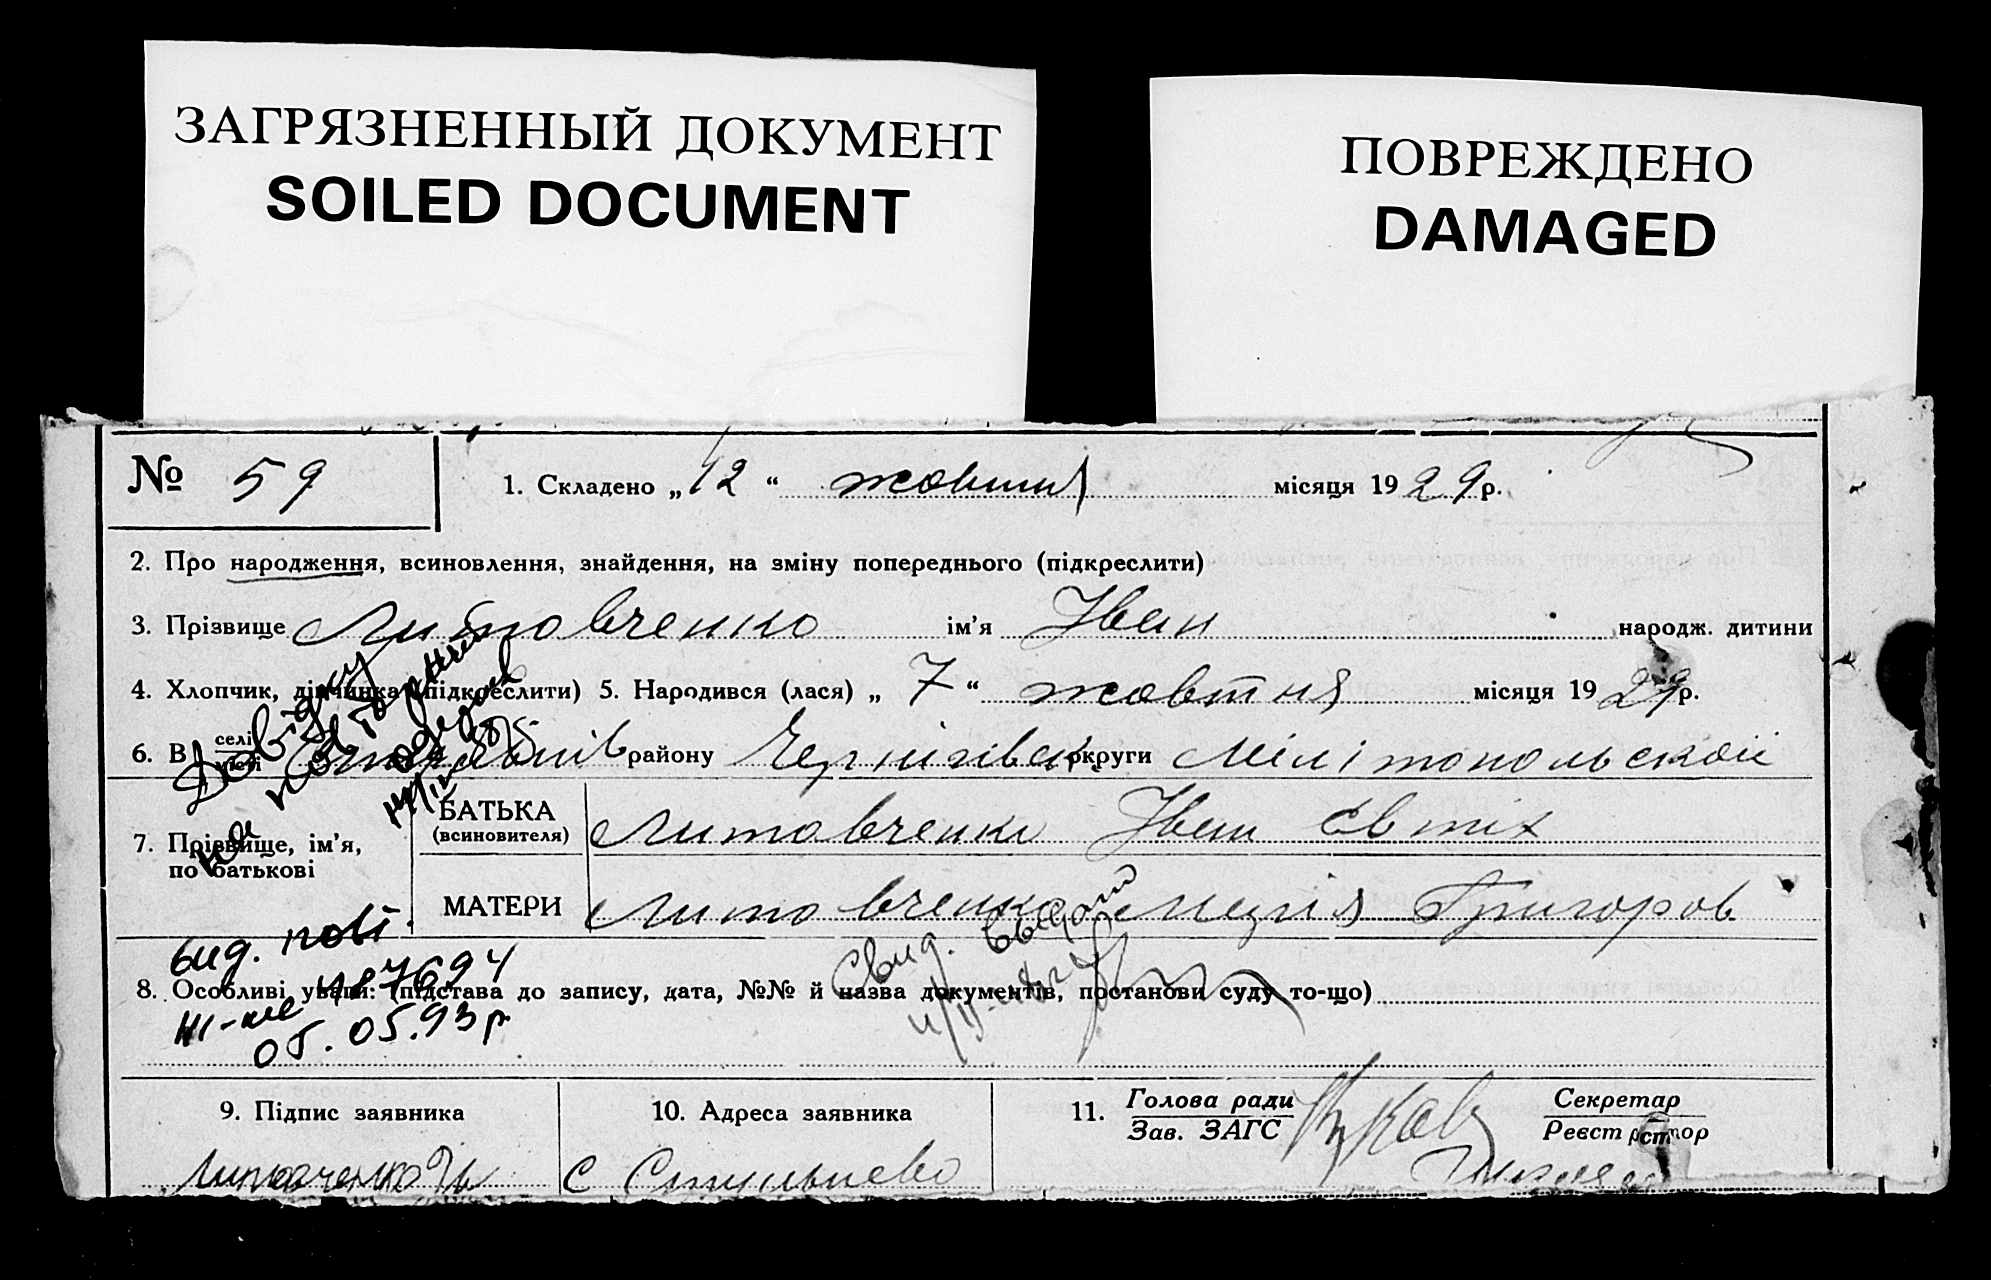 ЗАГРЯЗНЕННЫЙ ДОКУМЕНТ
SOILED DOCUMENT
ПОВРЕЖДЕНО
DAMAGED
№ 59
1. Складено „12“ жовтня місяця 1929р.
2. Про народження, всиновлення, знайдення, на зміну попереднього (підкреслити)
3. Прізвище Литовченко ім'я Іван народж. дитини
4. Хлопчик, дівчинка (підкреслити) 5. Народився (лася) „7“ жовтня місяця 1929р.
6. В селі місті району Чернігівськ. округи Мілітопольскої
7. Прізвище, ім'я, по батькові
БАТЬКА (всиновителя) Литовченко Іван Євтіх
МАТЕРИ Литовченко Марія Григоров
Довідку на повторний
вид. повт.
III-ЖС 487694
05.05.93 р
Свид. выдано
8. Особливі уваги: (підстава до запису, дата, №№ й назва документів, постанови суду то-що)
9. Підпис заявника
Литовченко Ів
10. Адреса заявника
с
11. Голова ради
Зав. ЗАГС
Секретар
Реєстратор